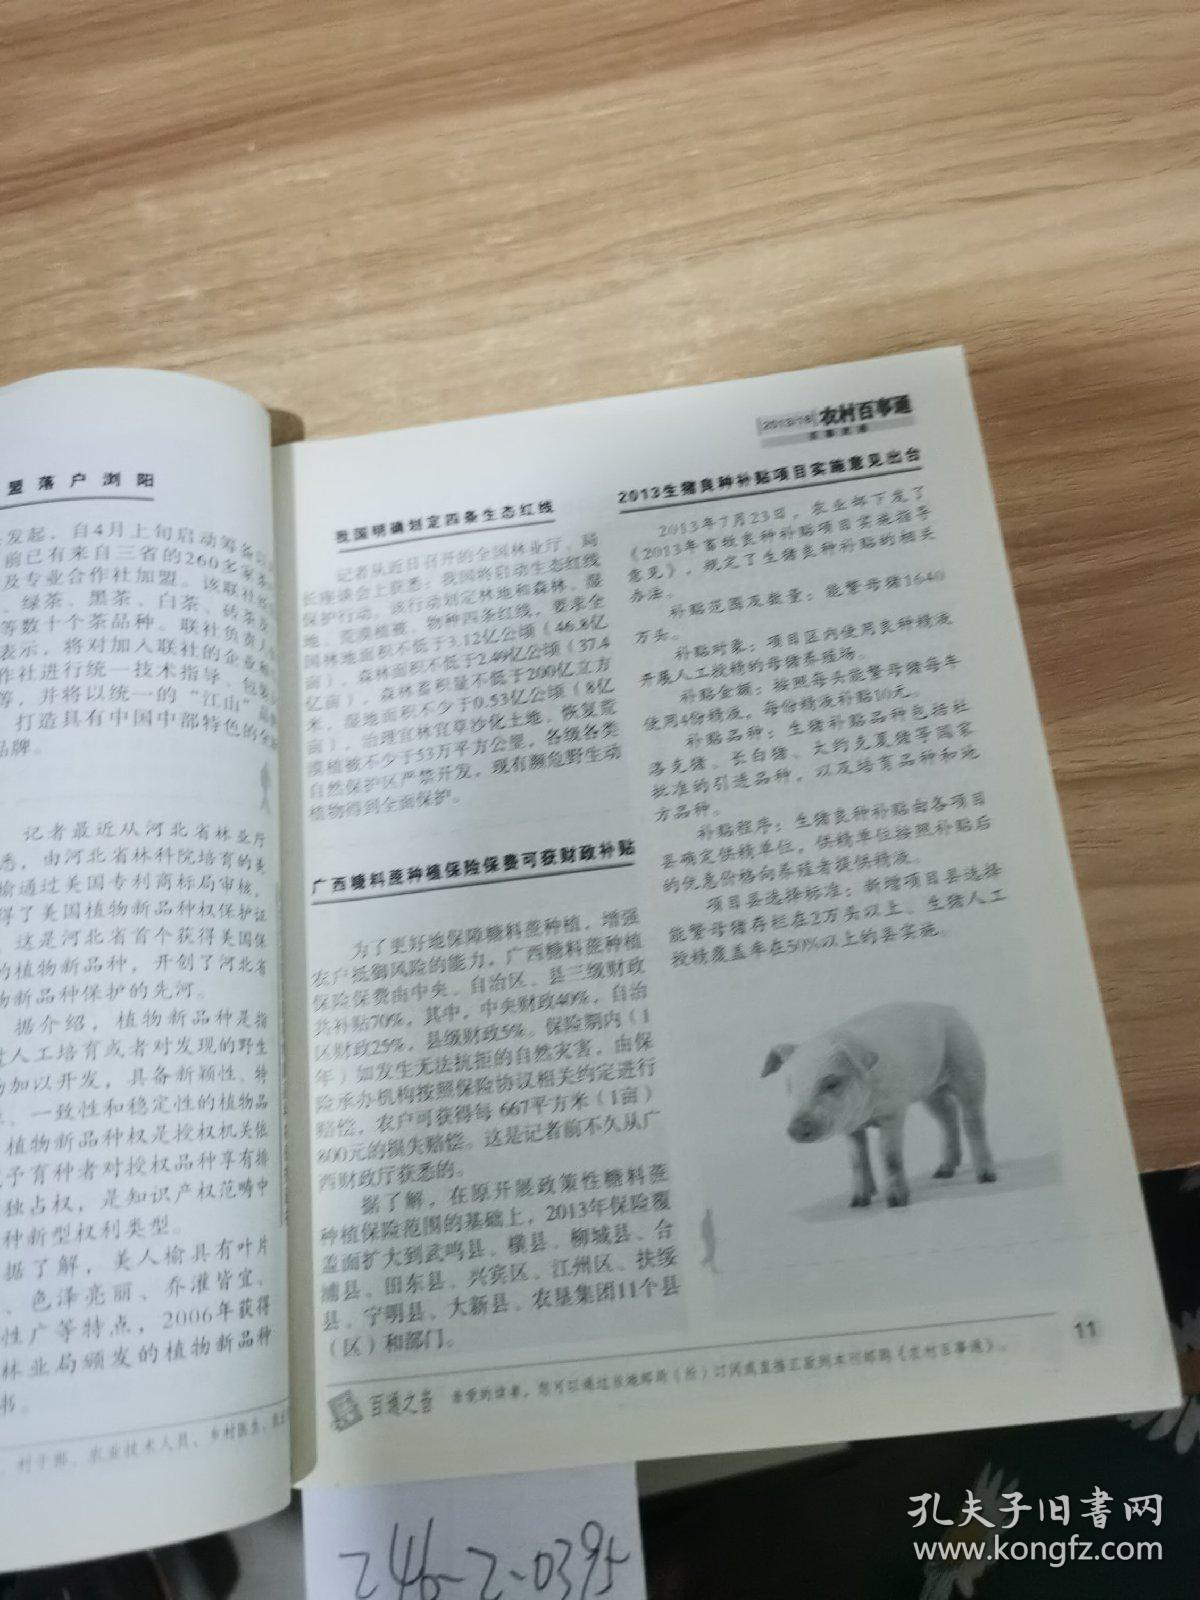 盟落户浏阳
发起，自4月上旬启动筹备以
前已有来自三省的260多家茶
及专业合作社加盟。该联社经
、绿茶、黑茶、白茶、砖茶及
等数十个茶品种。联社负责人
表示，将对加入联社的企业和
作社进行统一技术指导、包装
等，并将以统一的“江山”品牌
打造具有中国中部特色的全
品牌。
记者最近从河北省林业厅
悉，由河北省林科院培育的美
榆通过美国专利商标局审核，
得了美国植物新品种权保护证
这是河北省首个获得美国保
的植物新品种，开创了河北省
物新品种保护的先河。
据介绍，植物新品种是指
过人工培育或者对发现的野生
物加以开发，具备新颖性、特
、一致性和稳定性的植物品
植物新品种权是授权机关依
予育种者对授权品种享有排
独占权，是知识产权范畴中
种新型权利类型。
据了解，美人榆具有叶片
、色泽亮丽、乔灌皆宜、
性广等特点，2006年获得
林业局颁发的植物新品种
书。
村干部、农业技术人员、乡村医生、
我国明确划定四条生态红线
记者从近日召开的全国林业厅、局
长座谈会上获悉：我国将启动生态红线
保护行动。该行动划定林地和森林、湿
地、荒漠植被、物种四条红线，要求全
国林地面积不低于3.12亿公顷（46.8亿
亩），森林面积不低于2.49亿公顷（37.4
亿亩），森林蓄积量不低于200亿立方
米，湿地面积不少于0.53亿公顷（8亿
亩），治理宜林宜草沙化土地、恢复荒
漠植被不少于53万平方公里，各级各类
自然保护区严禁开发，现有濒危野生动
植物得到全面保护。
广西糖料蔗种植保险保费可获财政补贴
为了更好地保障糖料蔗种植，增强
农户抵御风险的能力，广西糖料蔗种植
保险保费由中央、自治区、县三级财政
共补贴70%，其中，中央财政40%，自治
区财政25%，县级财政5%。保险期内（1
年）如发生无法抗拒的自然灾害，由保
险承办机构按照保险协议相关约定进行
赔偿，农户可获得每 667平方米（1亩）
800元的损失赔偿。这是记者前不久从广
西财政厅获悉的。
据了解，在原开展政策性糖料蔗
种植保险范围的基础上，2013年保险覆
盖面扩大到武鸣县、横县、柳城县、合
浦县、田东县、兴宾区、江州区、扶绥
县、宁明县、大新县、农垦集团11个县
（区）和部门。
2013/18 农村百事通
2013生猪良种补贴项目实施意见出台
2013年7月23日，农业部下发了
《2013年畜牧良种补贴项目实施指导
意见》，规定了生猪良种补贴的相关
办法。
补贴范围及数量：能繁母猪1640
万头。
补贴对象：项目区内使用良种精液
开展人工授精的母猪养殖场。
补贴金额：按照每头能繁母猪每年
使用4份精液，每份精液补贴10元。
补贴品种：生猪补贴品种包括杜
洛克猪、长白猪、大约克夏猪等国家
批准的引进品种，以及培育品种和地
方品种。
补贴程序：生猪良种补贴由各项目
县确定供精单位，供精单位按照补贴后
的优惠价格向养殖者提供精液。
项目县选择标准：新增项目县选择
能繁母猪存栏在2万头以上、生猪人工
授精覆盖率在50%以上的县实施。
11
百通之音 亲爱的读者，您可以通过当地邮局（所）订阅或直接汇款到本刊邮购《农村百事通》。
246-2-0395
孔夫子旧书网
www.kongfz.com